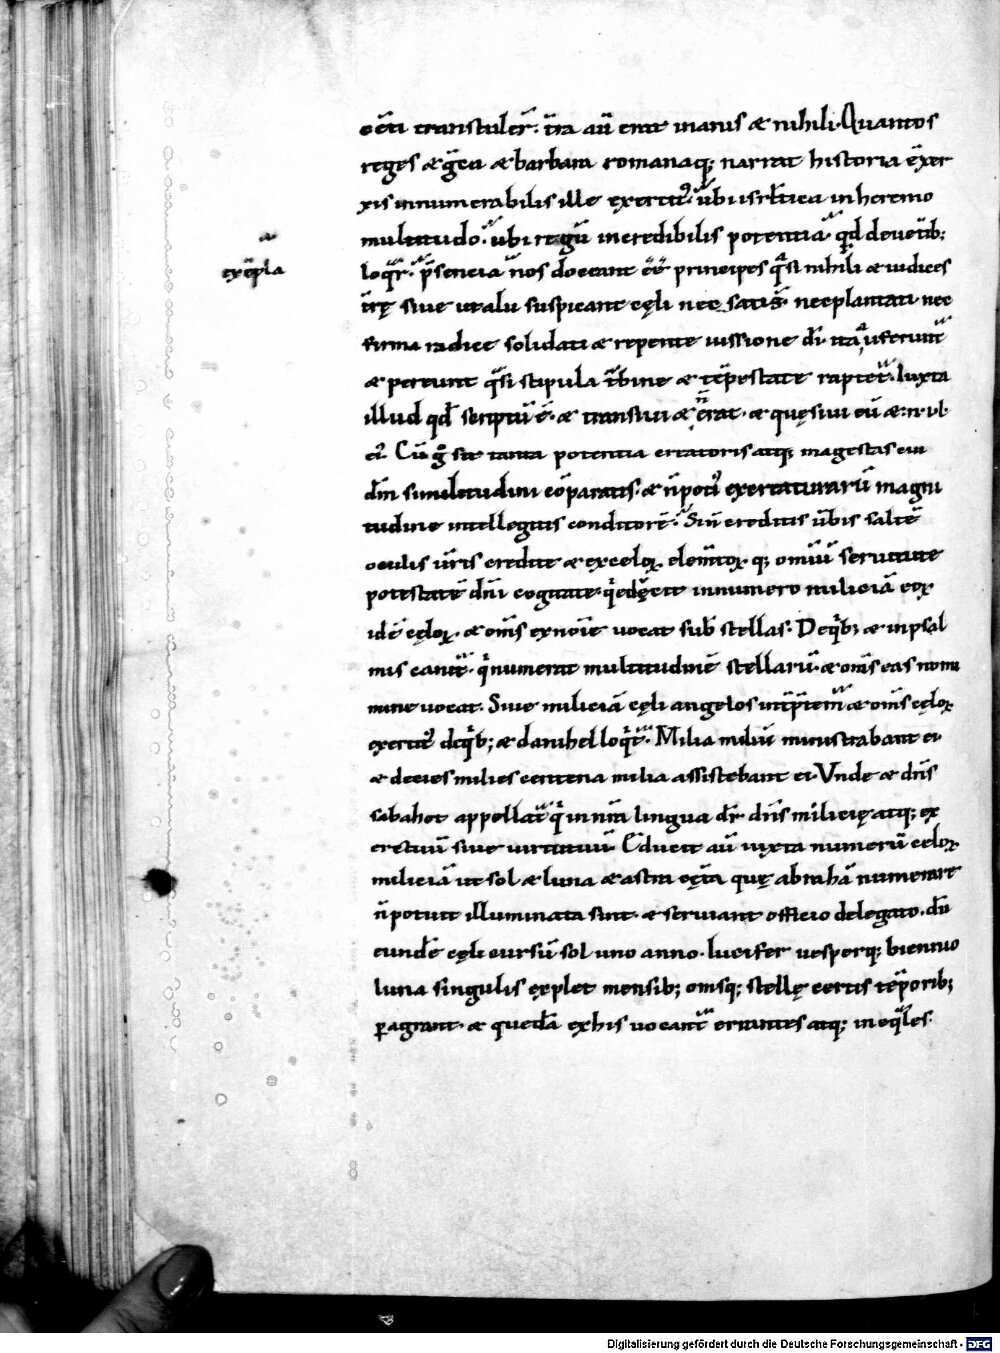 ceti transtuler̄. t̄ra aū erat inanis & nihili. Quantos
reges & gr̄ea & barbara romanaq; narrat historia ēxer
xis innumerabilis ille exercit᾿. ubi isrl̄itica in heremo
multitudo. ubi regū incredibilis potentia. qd̄ de uet̄ib;
exēpla
loqr̄. p̄sencia n̄os doceant ēē principes q̄si nihili & iudices
t̄rę siue ut alii suspicant cęli nec satis. nec plantati nec
firma radice solidati & repente iussione dī. ita auferunt
& pereunt q̄si stipula t̄bine & tēpestate raptet. Iuxta
illud qd̄ scriptū ē. & transiui & n̄ erat. & quęsiui eū &
Cū g̊ sit tanta potentia creatoris atq; magestas
similitudini cōparatis. & n̄ poti᾿ ex creaturarū magni
tudine intellegitis conditorē. Sin̄ creditis ūbis saltē
oculis ūris credite & excelsoꝝ elem̄toꝝ q; omiū seruitute
potestatē dn̄i cogitate. q̄ edęcit in numero miliciā eoꝝ
id ē cęloꝝ. & om̄s ex noīe uocat sub stellas. De qb; & in psal
mis canit. q̄ numerat multitudinē stellarū. & om̄s eas nomi
mine uocat. Siue miliciā cęli angelos int̄p̄tem̄ & om̄s cęloꝝ
exercit᾿ deqb; & danihel loqt̄. Milia miliū ministrabant ei
& decies milies centena milia assistebant ei. Vnde & dn̄s
sabahot appellat̄ q̄ in nr̄a lingua dr̄ dn̄s milicię atq; ex
ercituū siue uirtutuū. Educit aū iuxta numerū celoꝝ
miliciā ut sol & luna & astra cęt̄a quę abrahā numerare
n̄ potuit illuminata sint. & seruiant officio delegato. dū
eundē cęli cursū sol uno anno. lucifer uesperq; biennio
luna singulis explet mensib; om̄sq; stellę certis tēporib;
ꝑagrant. & quedā ex his uocant errantes atq; ineq̄les.